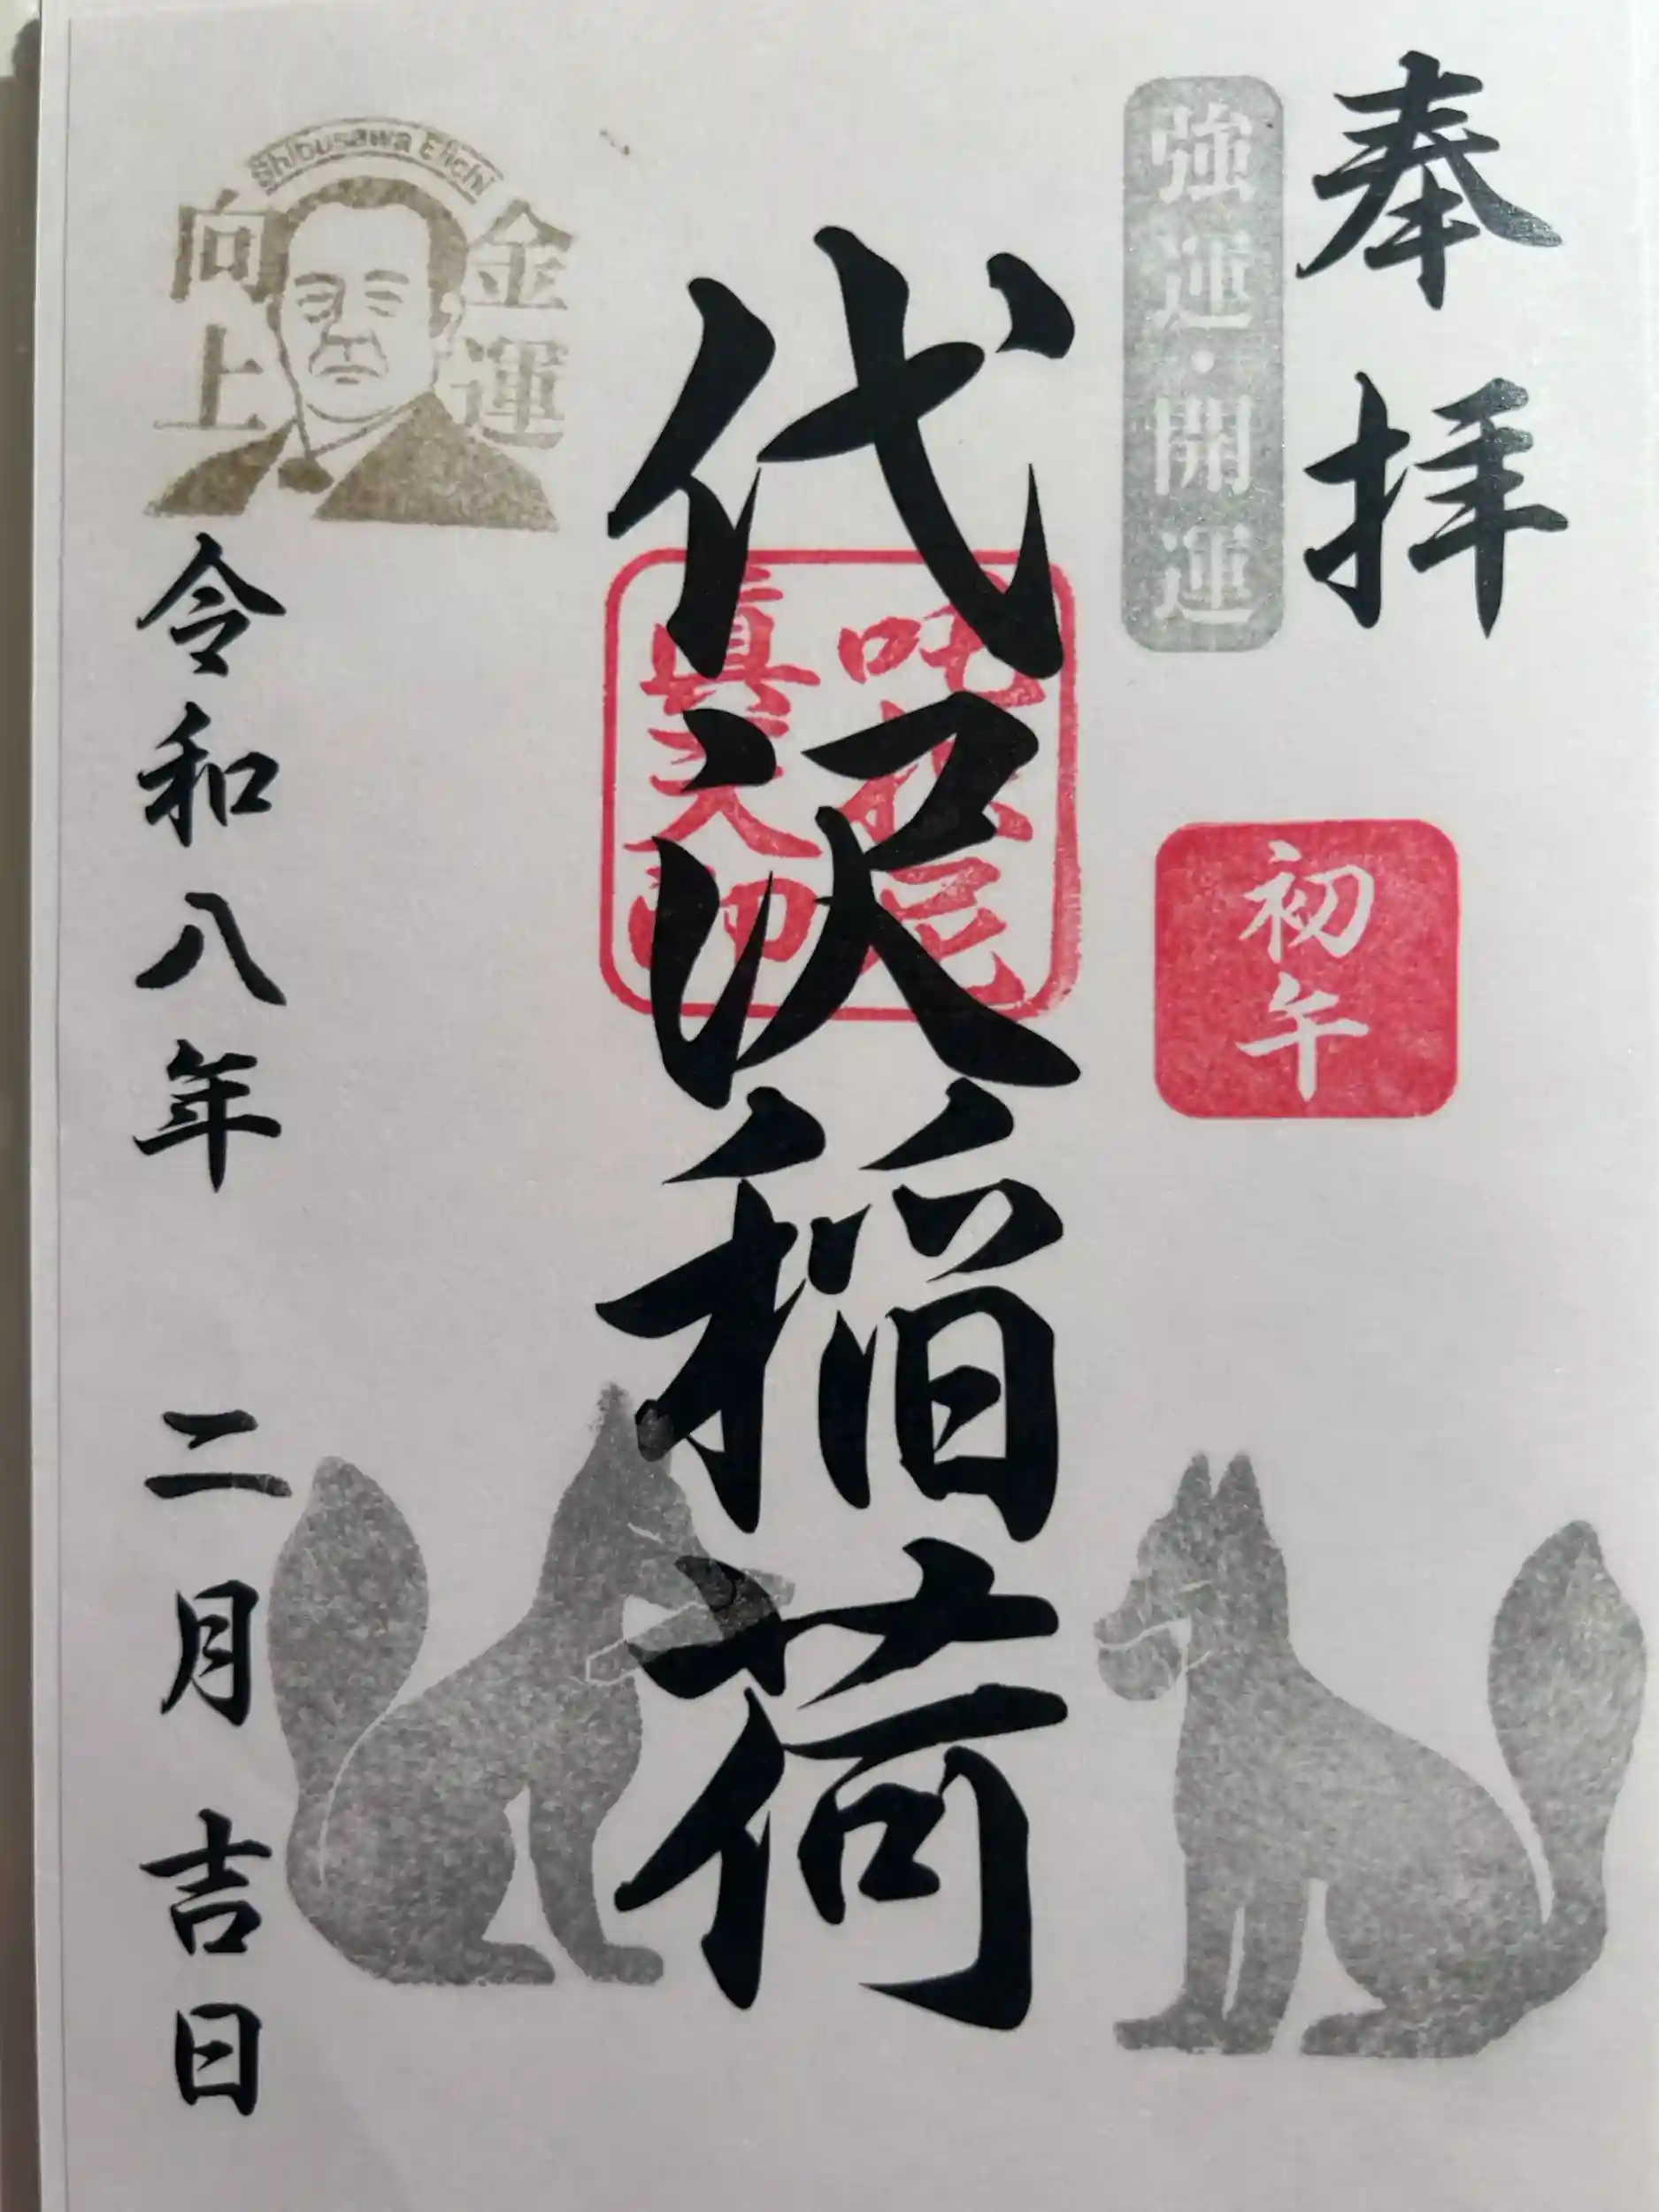 奉拝
強運・開運
初午
代沢稲荷
吒枳尼
眞天印
Shibusawa Eiichi
金運
向上
令和八年 二月 吉日